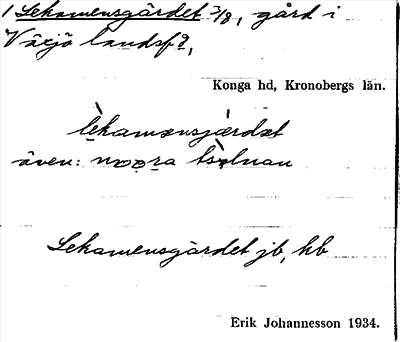 1 Lekamensgärdet 3/8, gård i
Växjö landsf.,
Konga hd, Kronobergs län.
lèkamænsjæ̀rdæt
även: nωrra
Lekamensgärdet jb, kb
Erik Johannesson 1934.